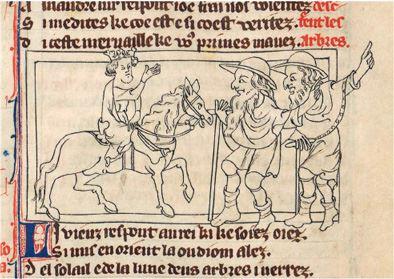 respont
S i me dites ke coe est e si coest ueritez sent les
D iceste merueille ke vo9 primes mauez arbres.
L i uieuz respont au rei ki ke soiez oiez
S i uus en orient la ou diom alez
D el solail e de la lune deus arbres i uerrez.